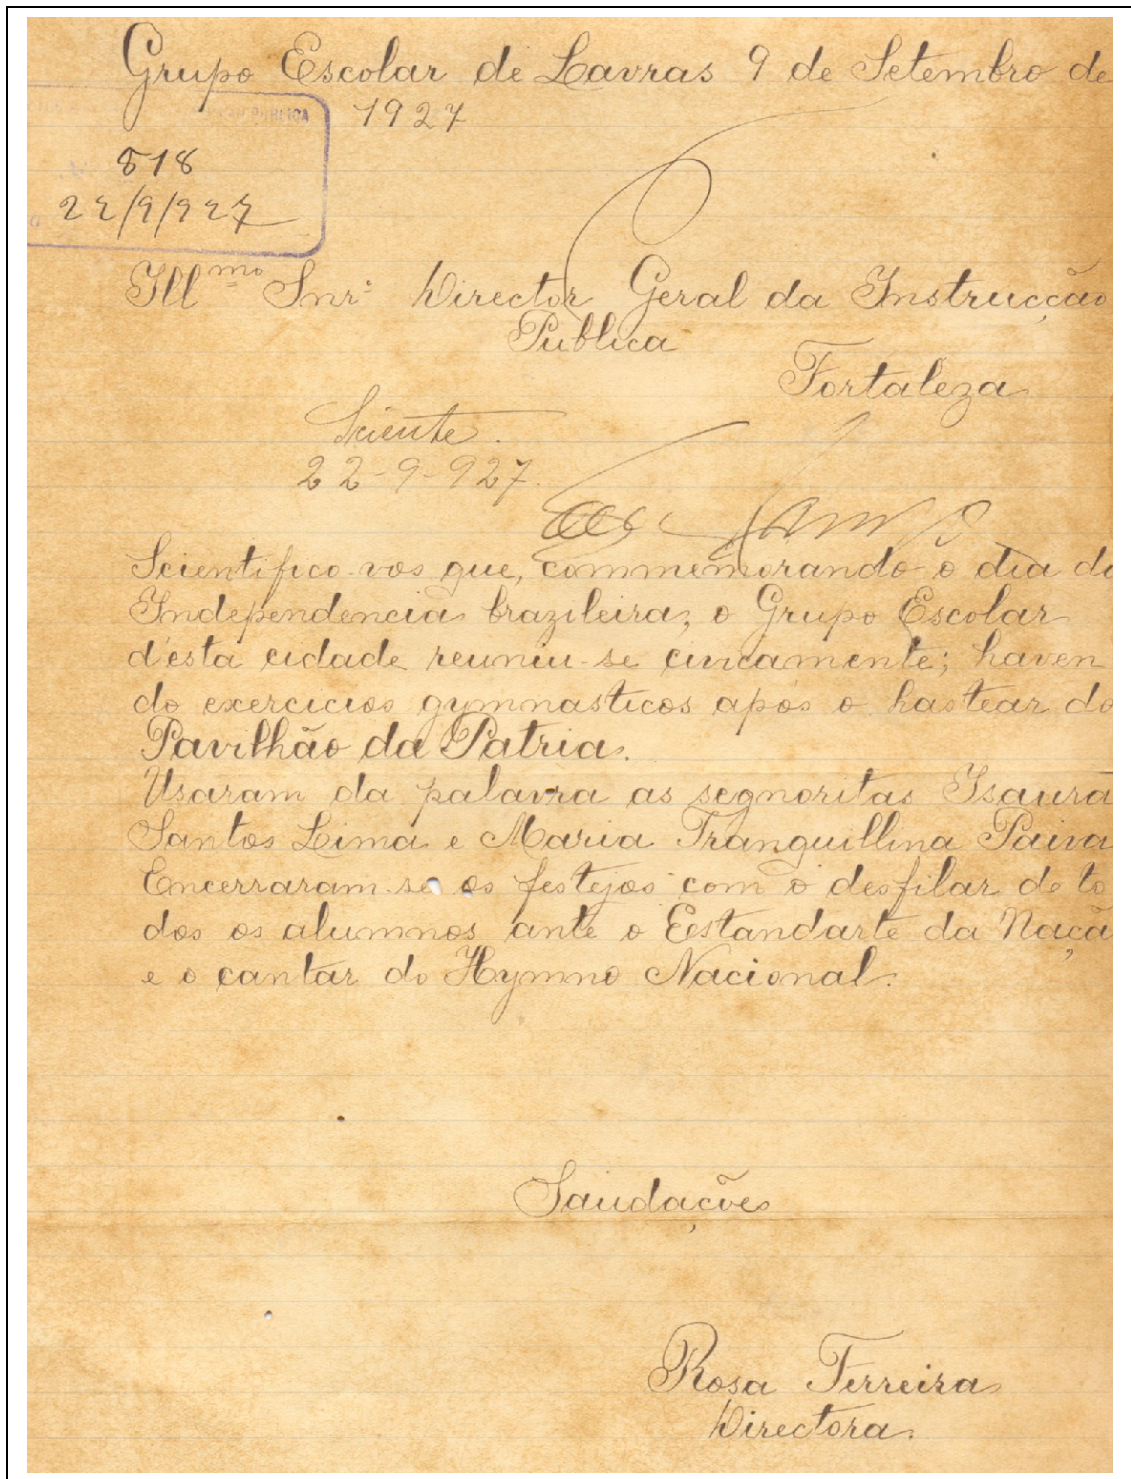 Grupo Escolar de Lavras 9 de Setembro de
1927
PUBLICA
818
22/9/927
Ill^mo Snr: Director Geral da Instrucção
Publica
Fortaleza
Sciente.
22-9-927.
Scientifico-vos que, commemorando o dia da
Independencia brazileira, o Grupo Escolar
d'esta cidade reuniu-se civicamente; haven
do exercicios gymnasticos após o hastear do
Pavilhão da Patria.
Usaram da palavra as segnoritas Isaura
Santos Lima e Maria Tranquillina Paiva
Encerraram-se os festejos com o desfilar de to
dos os alumnos ante o Estandarte da Naçã
e o cantar do Hymno Nacional.
Saudações
Rosa Ferreira
Directora.